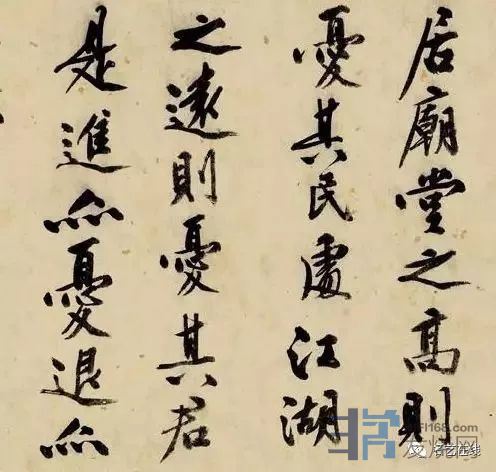 居廟堂之高則
憂其民處江湖
之遠則憂其君
是進亦憂退亦
名艺在线